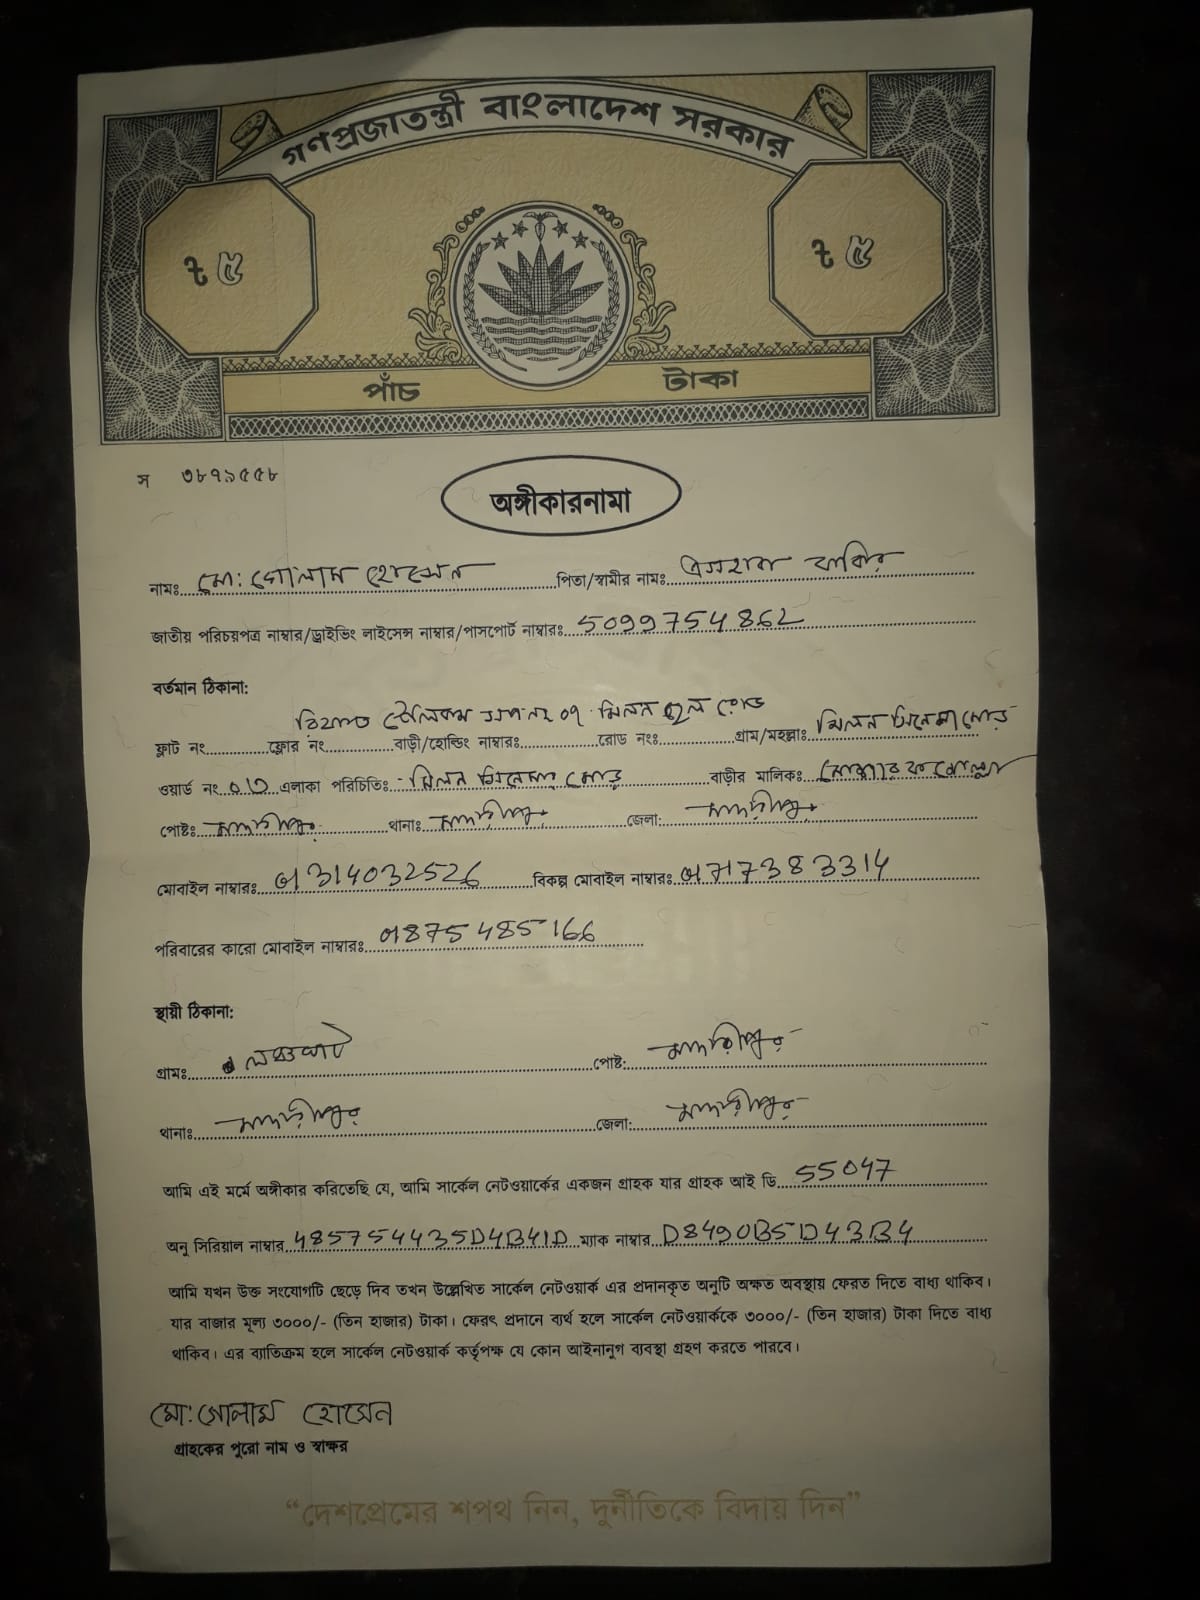 গণপ্রজাতন্ত্রী বাংলাদেশ সরকার
৳ ৫ ৳ ৫
পাঁচ টাকা
স ৩৮৭৯৫৫৮
অঙ্গীকারনামা
নামঃ মো: গোলাম হোসেন পিতা/স্বামীর নামঃ
জাতীয় পরিচয়পত্র নাম্বার/ড্রাইভিং লাইসেন্স নাম্বার/পাসপোর্ট নাম্বারঃ 5099754862
বর্তমান ঠিকানা:
টেলিকম ০৭ মিলন হল রোড
ফ্লাট নং ফ্লোর নং বাড়ী/হোল্ডিং নাম্বারঃ রোড নংঃ গ্রাম/মহল্লাঃ মিলন সিনেমা মোড়
ওয়ার্ড নং ০৩ এলাকা পরিচিতিঃ মিলন সিনেমা মোড় বাড়ীর মালিকঃ
পোষ্টঃ মাদারীপুর থানাঃ মাদারীপুর জেলা: মাদারীপুর
মোবাইল নাম্বারঃ 01314032526 বিকল্প মোবাইল নাম্বারঃ 01717383314
পরিবারের কারো মোবাইল নাম্বারঃ 01875485166
স্থায়ী ঠিকানা:
গ্রামঃ পোষ্ট: মাদারীপুর
থানাঃ মাদারীপুর জেলা: মাদারীপুর
আমি এই মর্মে অঙ্গীকার করিতেছি যে, আমি সার্কেল নেটওয়ার্কের একজন গ্রাহক যার গ্রাহক আই ডি 55047
অনু সিরিয়াল নাম্বার 485754435D4B41D ম্যাক নাম্বার D8490B5D43B4
আমি যখন উক্ত সংযোগটি ছেড়ে দিব তখন উল্লেখিত সার্কেল নেটওয়ার্ক এর প্রদানকৃত অনুটি অক্ষত অবস্থায় ফেরত দিতে বাধ্য থাকিব।
যার বাজার মূল্য ৩০০০/- (তিন হাজার) টাকা। ফেরৎ প্রদানে ব্যর্থ হলে সার্কেল নেটওয়ার্ককে ৩০০০/- (তিন হাজার) টাকা দিতে বাধ্য
থাকিব। এর ব্যাতিক্রম হলে সার্কেল নেটওয়ার্ক কর্তৃপক্ষ যে কোন আইনানুগ ব্যবস্থা গ্রহণ করতে পারবে।
মো: গোলাম হোসেন
গ্রাহকের পুরো নাম ও স্বাক্ষর
“দেশপ্রেমের শপথ নিন, দুর্নীতিকে বিদায় দিন”